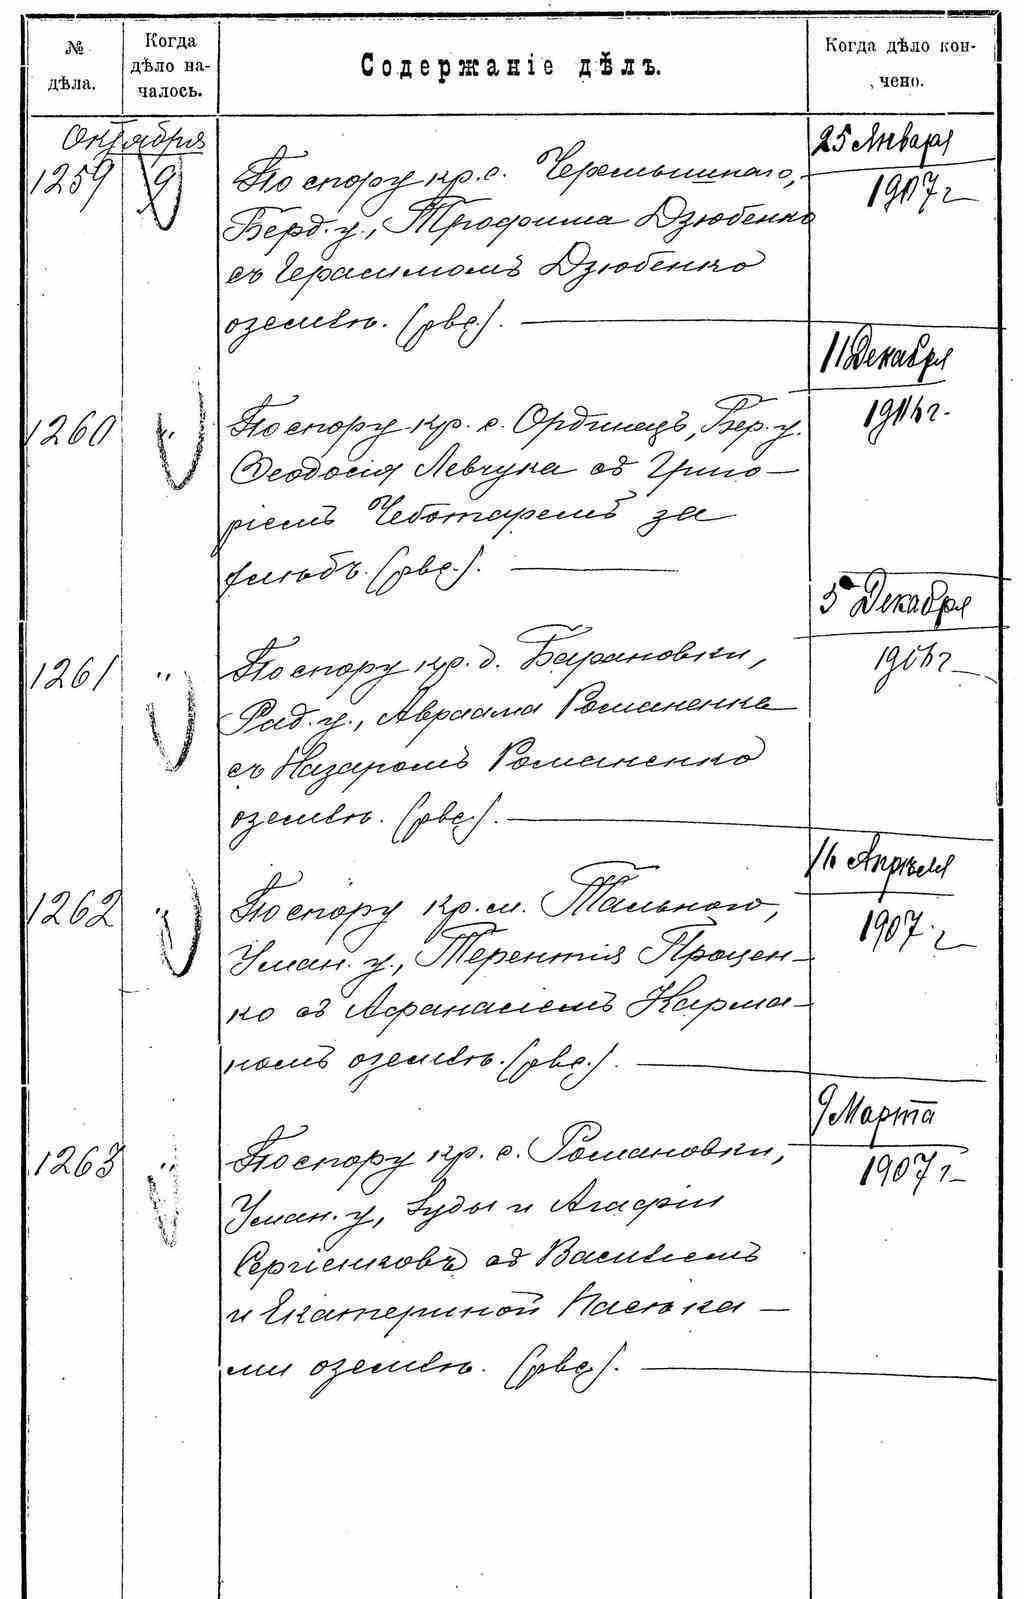 № дѣла.
Когда дѣло на-
чалось.
Содержаніе дѣлъ.
Когда дѣло кон-
чено.
Октября
1259
9
По спору кр. с. Черемышнаго,
Берд. у., Трофима Дзюбенко
съ Герасимомъ Дзюбенко
о землѣ. (рвс.).
25 Января
1907 г
1260
"
По спору кр. с. Ординецъ, Бер. у.
Ѳеодосія Левчука съ Григо-
ріемъ Чеботаремъ за
хлѣбъ. (рвс.).
11 Декабря
1906 г.
1261
"
По спору кр. д. Барановки,
Рад. у., Авраама Романенка
съ Назаромъ Романенко
о землѣ. (рвс.).
5 Декабря
1906 г
1262
"
По спору кр. м. Тальнаго,
Уман. у., Терентія Процен-
ко съ Афанасіемъ Карма-
номъ о землѣ. (рвс.).
16 Апрѣля
1907 г
1263
"
По спору кр. с. Романовки,
Уман. у., Іуды и Агафіи
Сергіенковъ съ Василіемъ
и Екатериной Пасѣка-
ми о землѣ. (рвс.).
9 Марта
1907 г